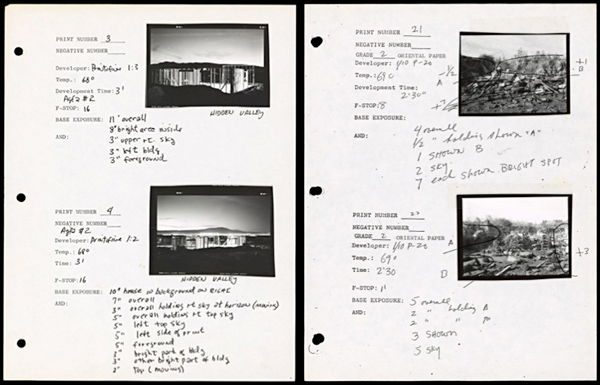 PRINT NUMBER 3
NEGATIVE NUMBER
Developer: 1:3
Temp.: 68°
Development Time: 3'
Agfa #2
F-STOP: 16
BASE EXPOSURE: 11" overall
AND: 8" bright area inside
3" upper rt. sky
3" left bldg
3" foreground
HIDDEN VALLEY
PRINT NUMBER 4
NEGATIVE NUMBER
Agfa #2
Developer: 1:2
Temp.: 68°
Time: 3'
F-STOP: 16
BASE EXPOSURE: 10" house w background on RIGHT
AND: 7" overall
3" overall holding rt sky at horizon (moving)
5" overall holding rt top sky
5" left top sky
5" left side of print
5" foreground
3" bright part of bldg
3" other bright part of bldg
2" top (moving)
HIDDEN VALLEY
PRINT NUMBER 21
NEGATIVE NUMBER
GRADE 2 ORIENTAL PAPER
Developer: 1/10 P-20
Temp.: 69°
Development Time:
2'30"
F-STOP: 8
BASE EXPOSURE:
AND: 4 overall
1/2 " holding shown "A"
1 SHOWN B
2 SKY
7 each shown BRIGHT SPOT
-1/2
A
+1
B
PRINT NUMBER 22
NEGATIVE NUMBER
GRADE 2 ORIENTAL PAPER
Developer: 1/10 P-20
Temp.: 69°
Time: 2'30
F-STOP: 11
BASE EXPOSURE: 5 overall
AND: 2 " holding A
2 " "
3 SHOWN
5 SKY
A
+3